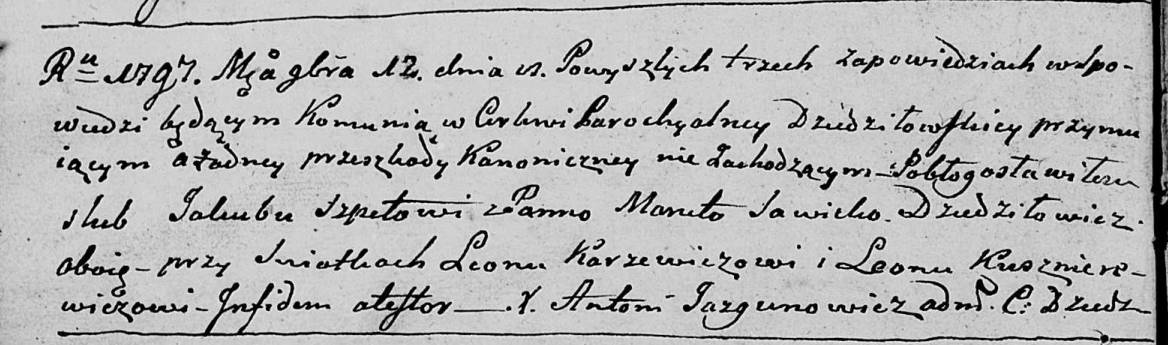 Ru 1797. Mca 9bra 12. dnia st. Powyszłych trzech zapowiedziach w spo-
wiedzi będącym Komunią w Cerkwi Parochyalney Dziedziłowskiey przymu
iącym a żadney przeszkody Kanoniczney nie zachodzącym Pobłogosławiłem
slub Jakubu Szpetowi z Panno Maruto Sawicko. Dziedziłowicz.
oboie - przy Swiatkach Leonu Karzewiczowi i Leonu Kuszniere-
wiczowi - In fidem atestor — X. Antoni Jazgunowicz adm. C: Dziedz